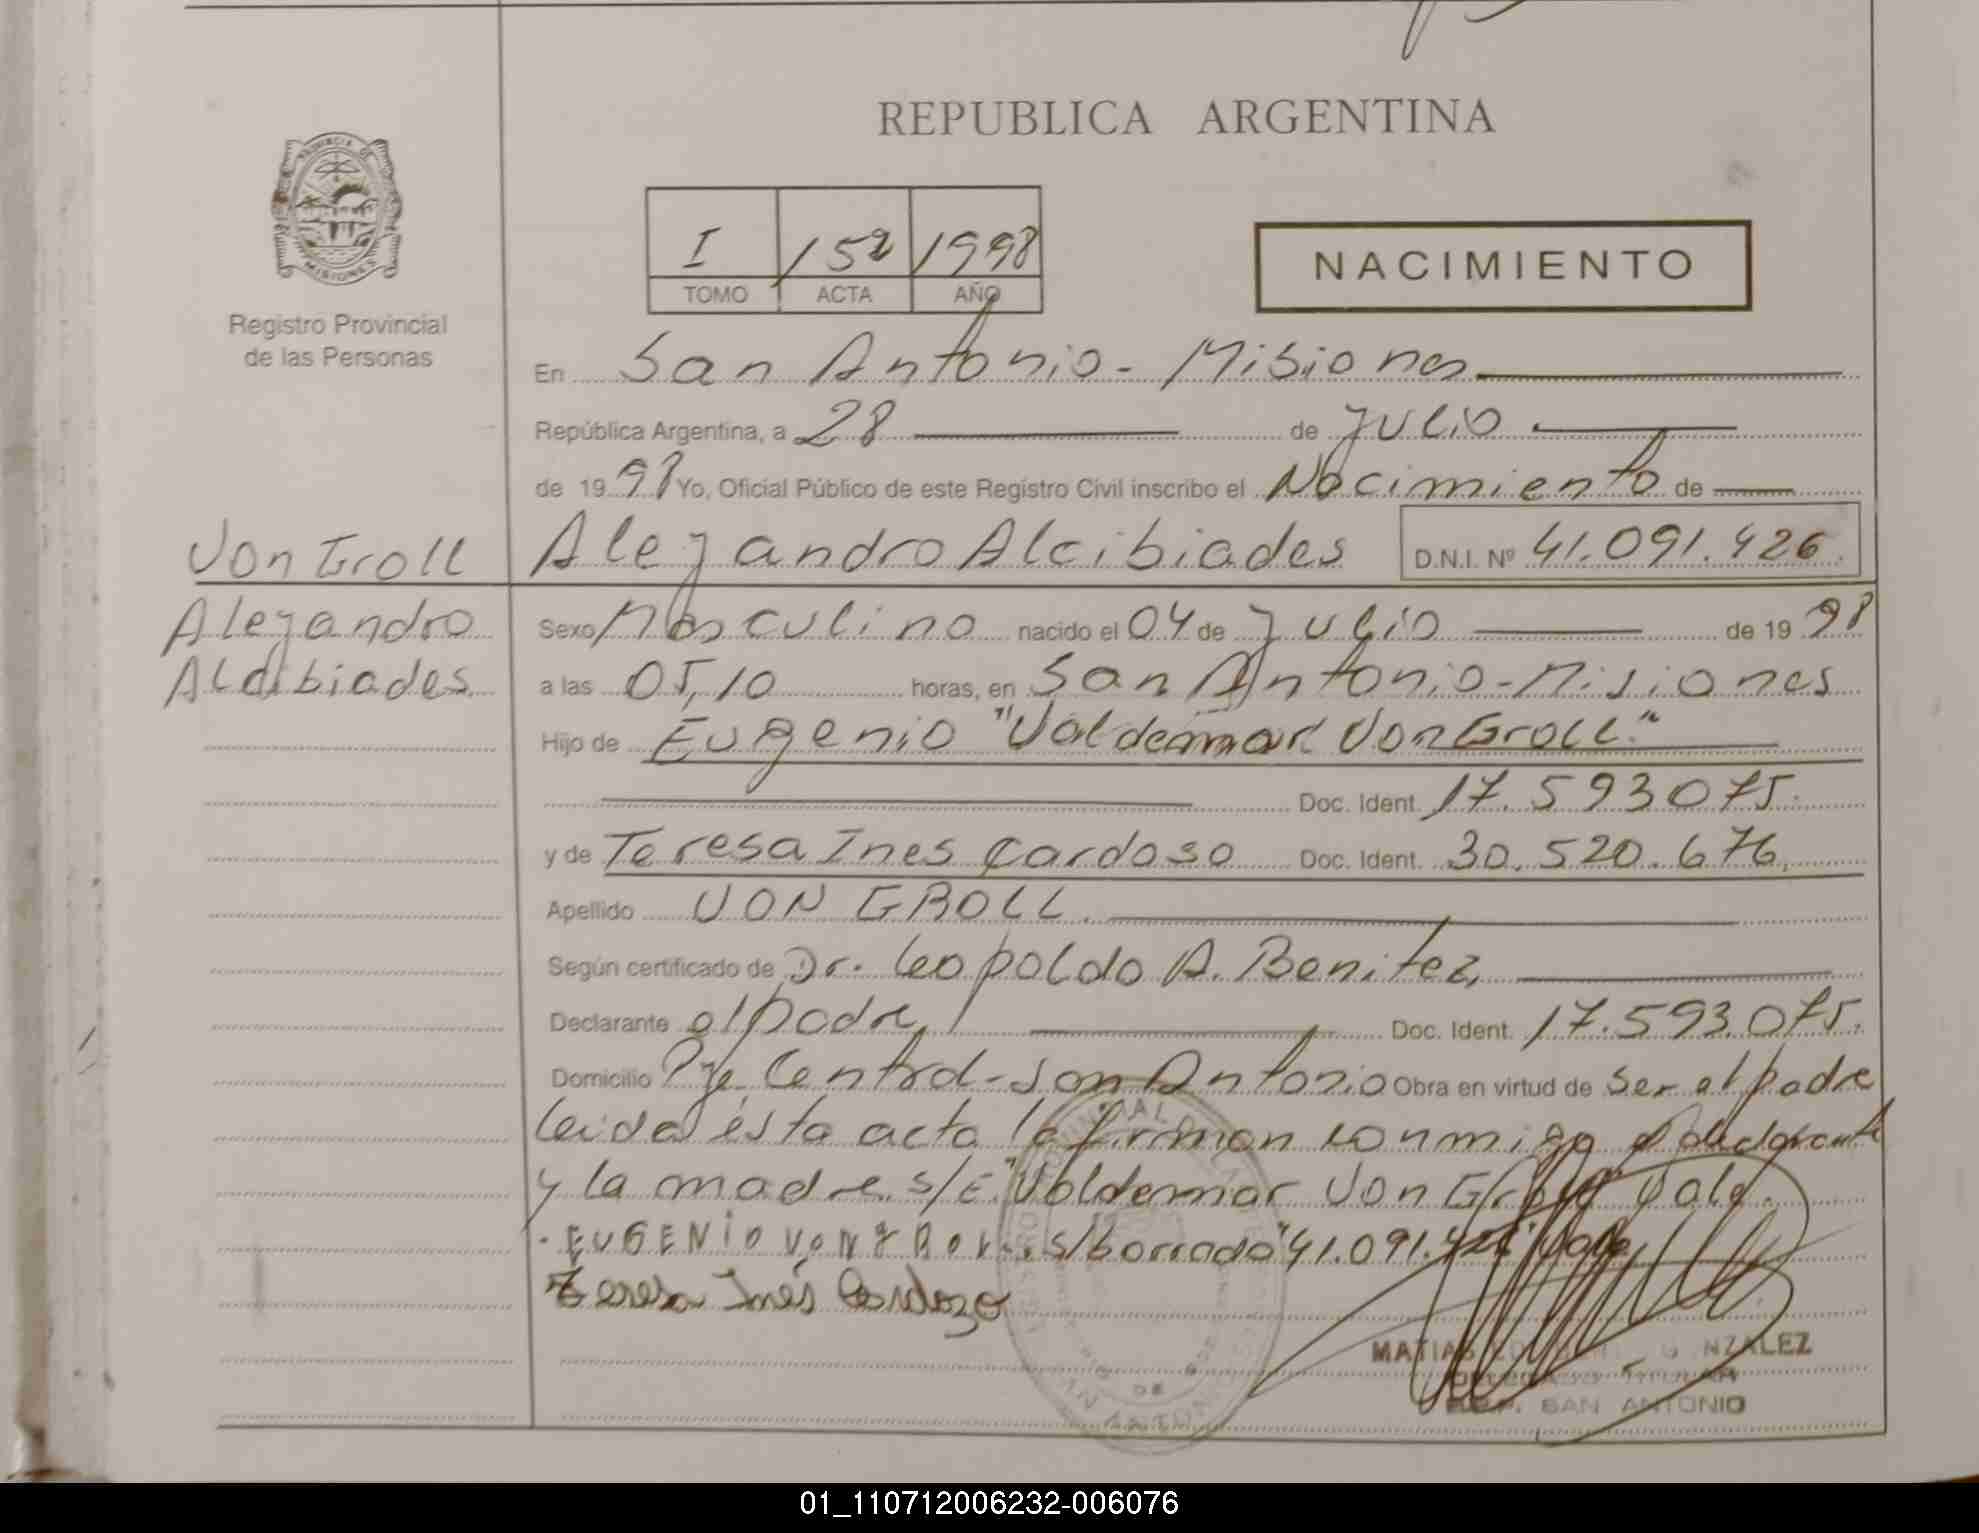 REPUBLICA ARGENTINA
PROVINCIA DE
MISIONES
Registro Provincial
de las Personas
I 152 1998
TOMO ACTA AÑO
NACIMIENTO
En San Antonio - Misiones
República Argentina, a 28 de Julio
de 1998 Yo, Oficial Público de este Registro Civil inscribo el Nacimiento de
Von Groll Alejandro Alcibiades D.N.I. Nº 41.091.426.
Alejandro
Alcibiades
Sexo Masculino nacido el 04 de Julio de 1998
a las 05,10 horas, en San Antonio - Misiones
Hijo de Eugenio "Valdemar Von Groll."
Doc. Ident. 17.593075.
y de Teresa Ines Cardoso Doc. Ident. 30.520.676,
Apellido VON GROLL.
Según certificado de Dr. Leopoldo A. Benitez,
Declarante el padre, Doc. Ident. 17.593.075.
Domicilio Pje. Central - San Antonio Obra en virtud de ser el padre
Leida ésta acta la firman conmigo el declarante
y la madre. s/E. "Valdemar Von Groll" Vale.
EUGENIO VON s/borrado "41.091.426" Vale
Teresa Inés Cardozo
MATIAS
DELEGADO TITULAR
R.P.P. SAN ANTONIO
01_110712006232-006076